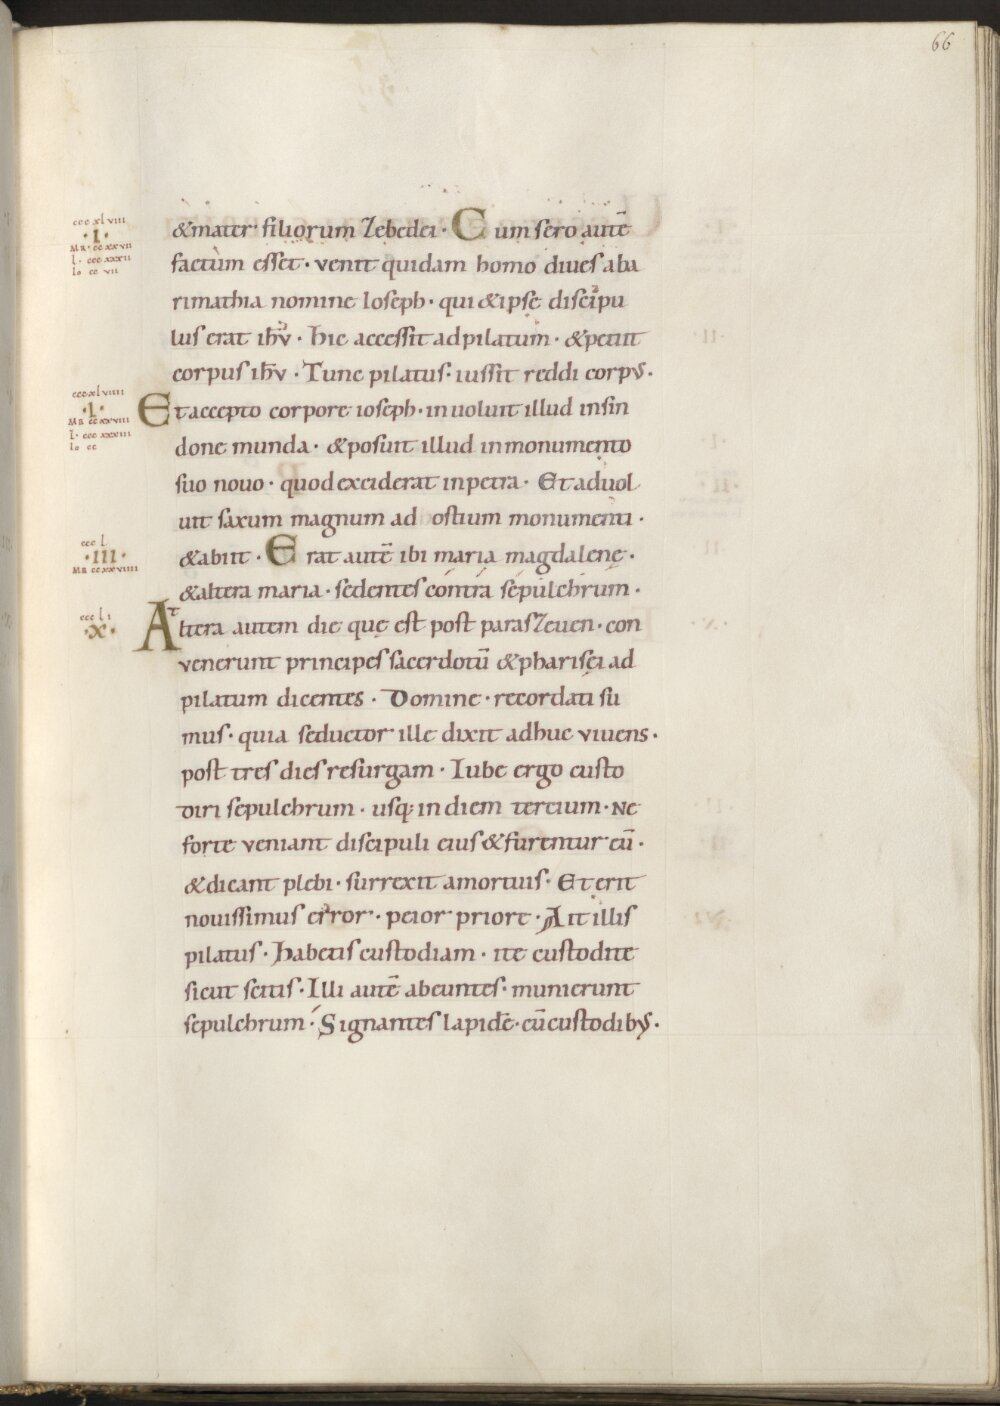 66
ccc xl viii
·I·
MR · cc xx vii
l · ccc xxx ii
Io cc vii
& mater filiorum Zebedei · Cum sero autē
factum esset · venit quidam homo diues ab a
rimathia nomine Ioseph · qui & ipse discipu
lus erat ihū · Hic accessit ad pilatum · & petiit
corpus ihū · Tunc pilatus · iussit reddi corpus ·
ccc xl viiii
·I·
MR cc xx viii
l · ccc xxx iii
Io cc
Et accepto corpore ioseph · inuoluit illud in sin
done munda · & posuit illud in monumento
suo nouo · quod exciderat in petra · Et aduol
uit saxum magnum ad ostium monumenti ·
ccc l
·III·
MR cc xx viiii
& abiit · Erat autē ibi maria magdalenę ·
& altera maria · sedentes contra sepulchrum ·
ccc l i
·X·
Altera autem die quę est post parasZeuen · con
venerunt principes sacerdotū & pharisęi ad
pilatum dicentes · Domine · recordati su
mus · quia seductor ille dixit adhuc viuens ·
post tres dies resurgam · Iube ergo custo
diri sepulchrum · usq; in diem tercium · Ne
forte veniant discipuli eius & furentur eū ·
& dicant plebi · surrexit a mortuis · Et erit
nouissimus error · peior priore · Ait illis
pilatus · Habetis custodiam · ite custodite
sicut scitis · Illi autē abeuntes · munierunt
sepulchrum · Signantes lapidē · cū custodibus ·